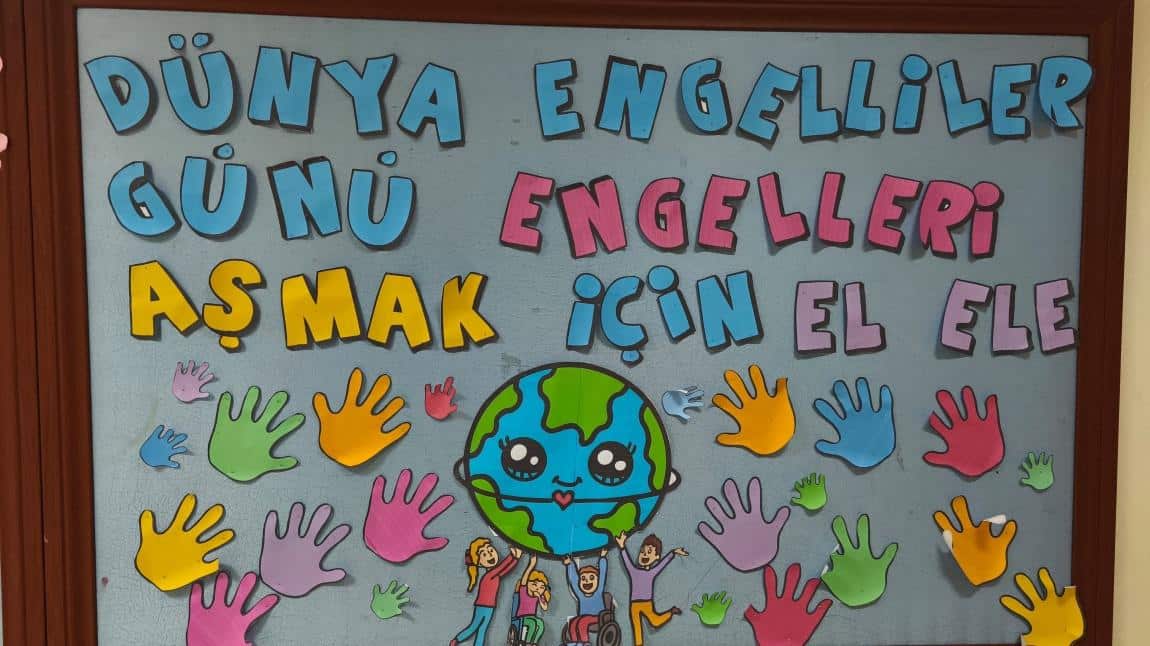 DÜNYA ENGELLİLER
GÜNÜ ENGELLERİ
AŞMAK İÇİN EL ELE